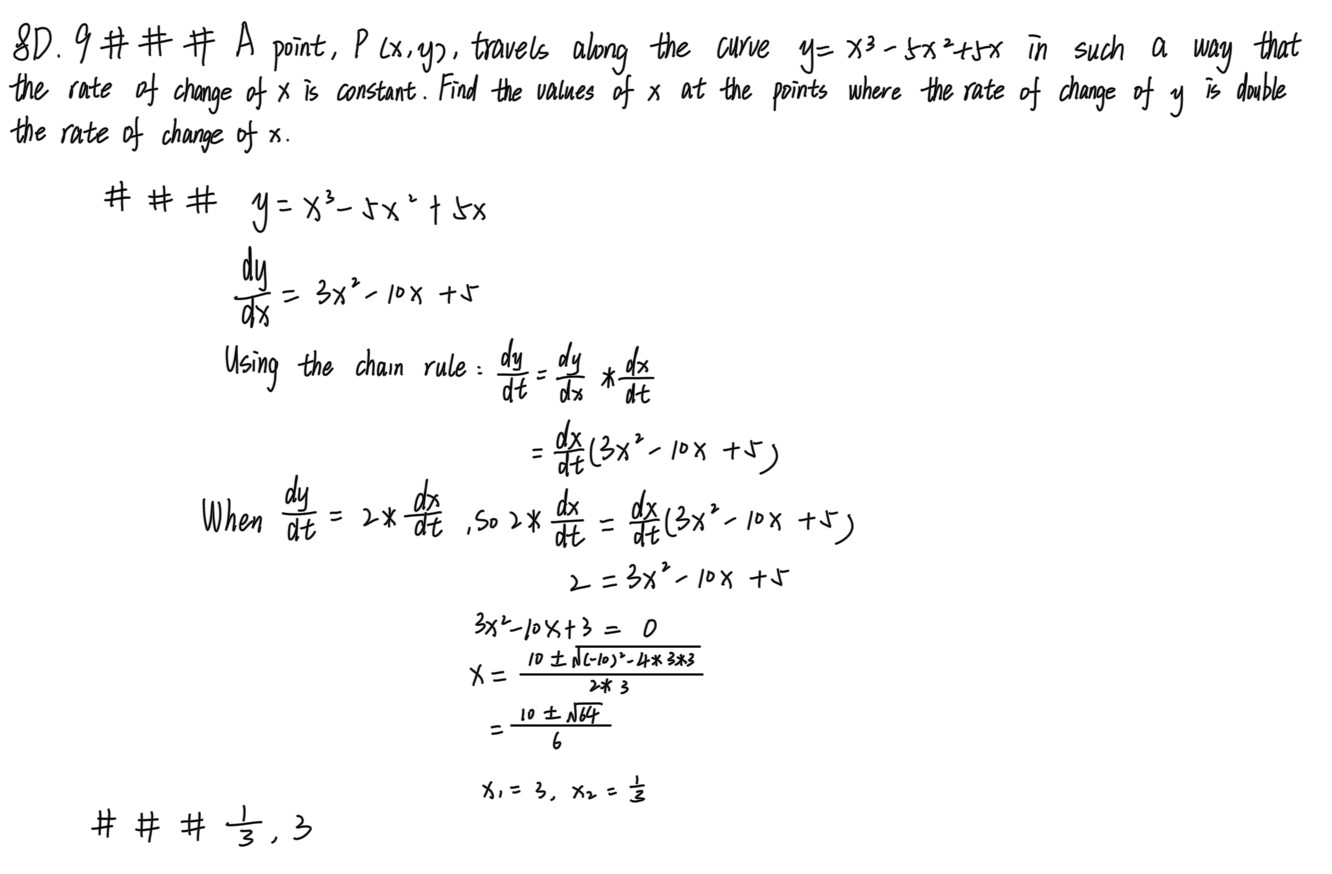 8D. 9 # # # A point, P(x,y), travels along the curve y= x³-5x²+5x in such a way that
the rate of change of x is constant. Find the values of x at the points where the rate of change of y is double
the rate of change of x.
# # # y = x³ - 5x² + 5x
dy/dx = 3x² - 10x + 5
Using the chain rule: dy/dt = dy/dx * dx/dt
= dx/dt (3x² - 10x + 5)
When dy/dt = 2* dx/dt, so 2* dx/dt = dx/dt (3x² - 10x + 5)
2 = 3x² - 10x + 5
3x²-10x+3 = 0
x = (10 ± √((-10)²-4*3*3))/(2*3)
= (10 ± √64)/6
x₁ = 3, x₂ = 1/3
# # # 1/3, 3